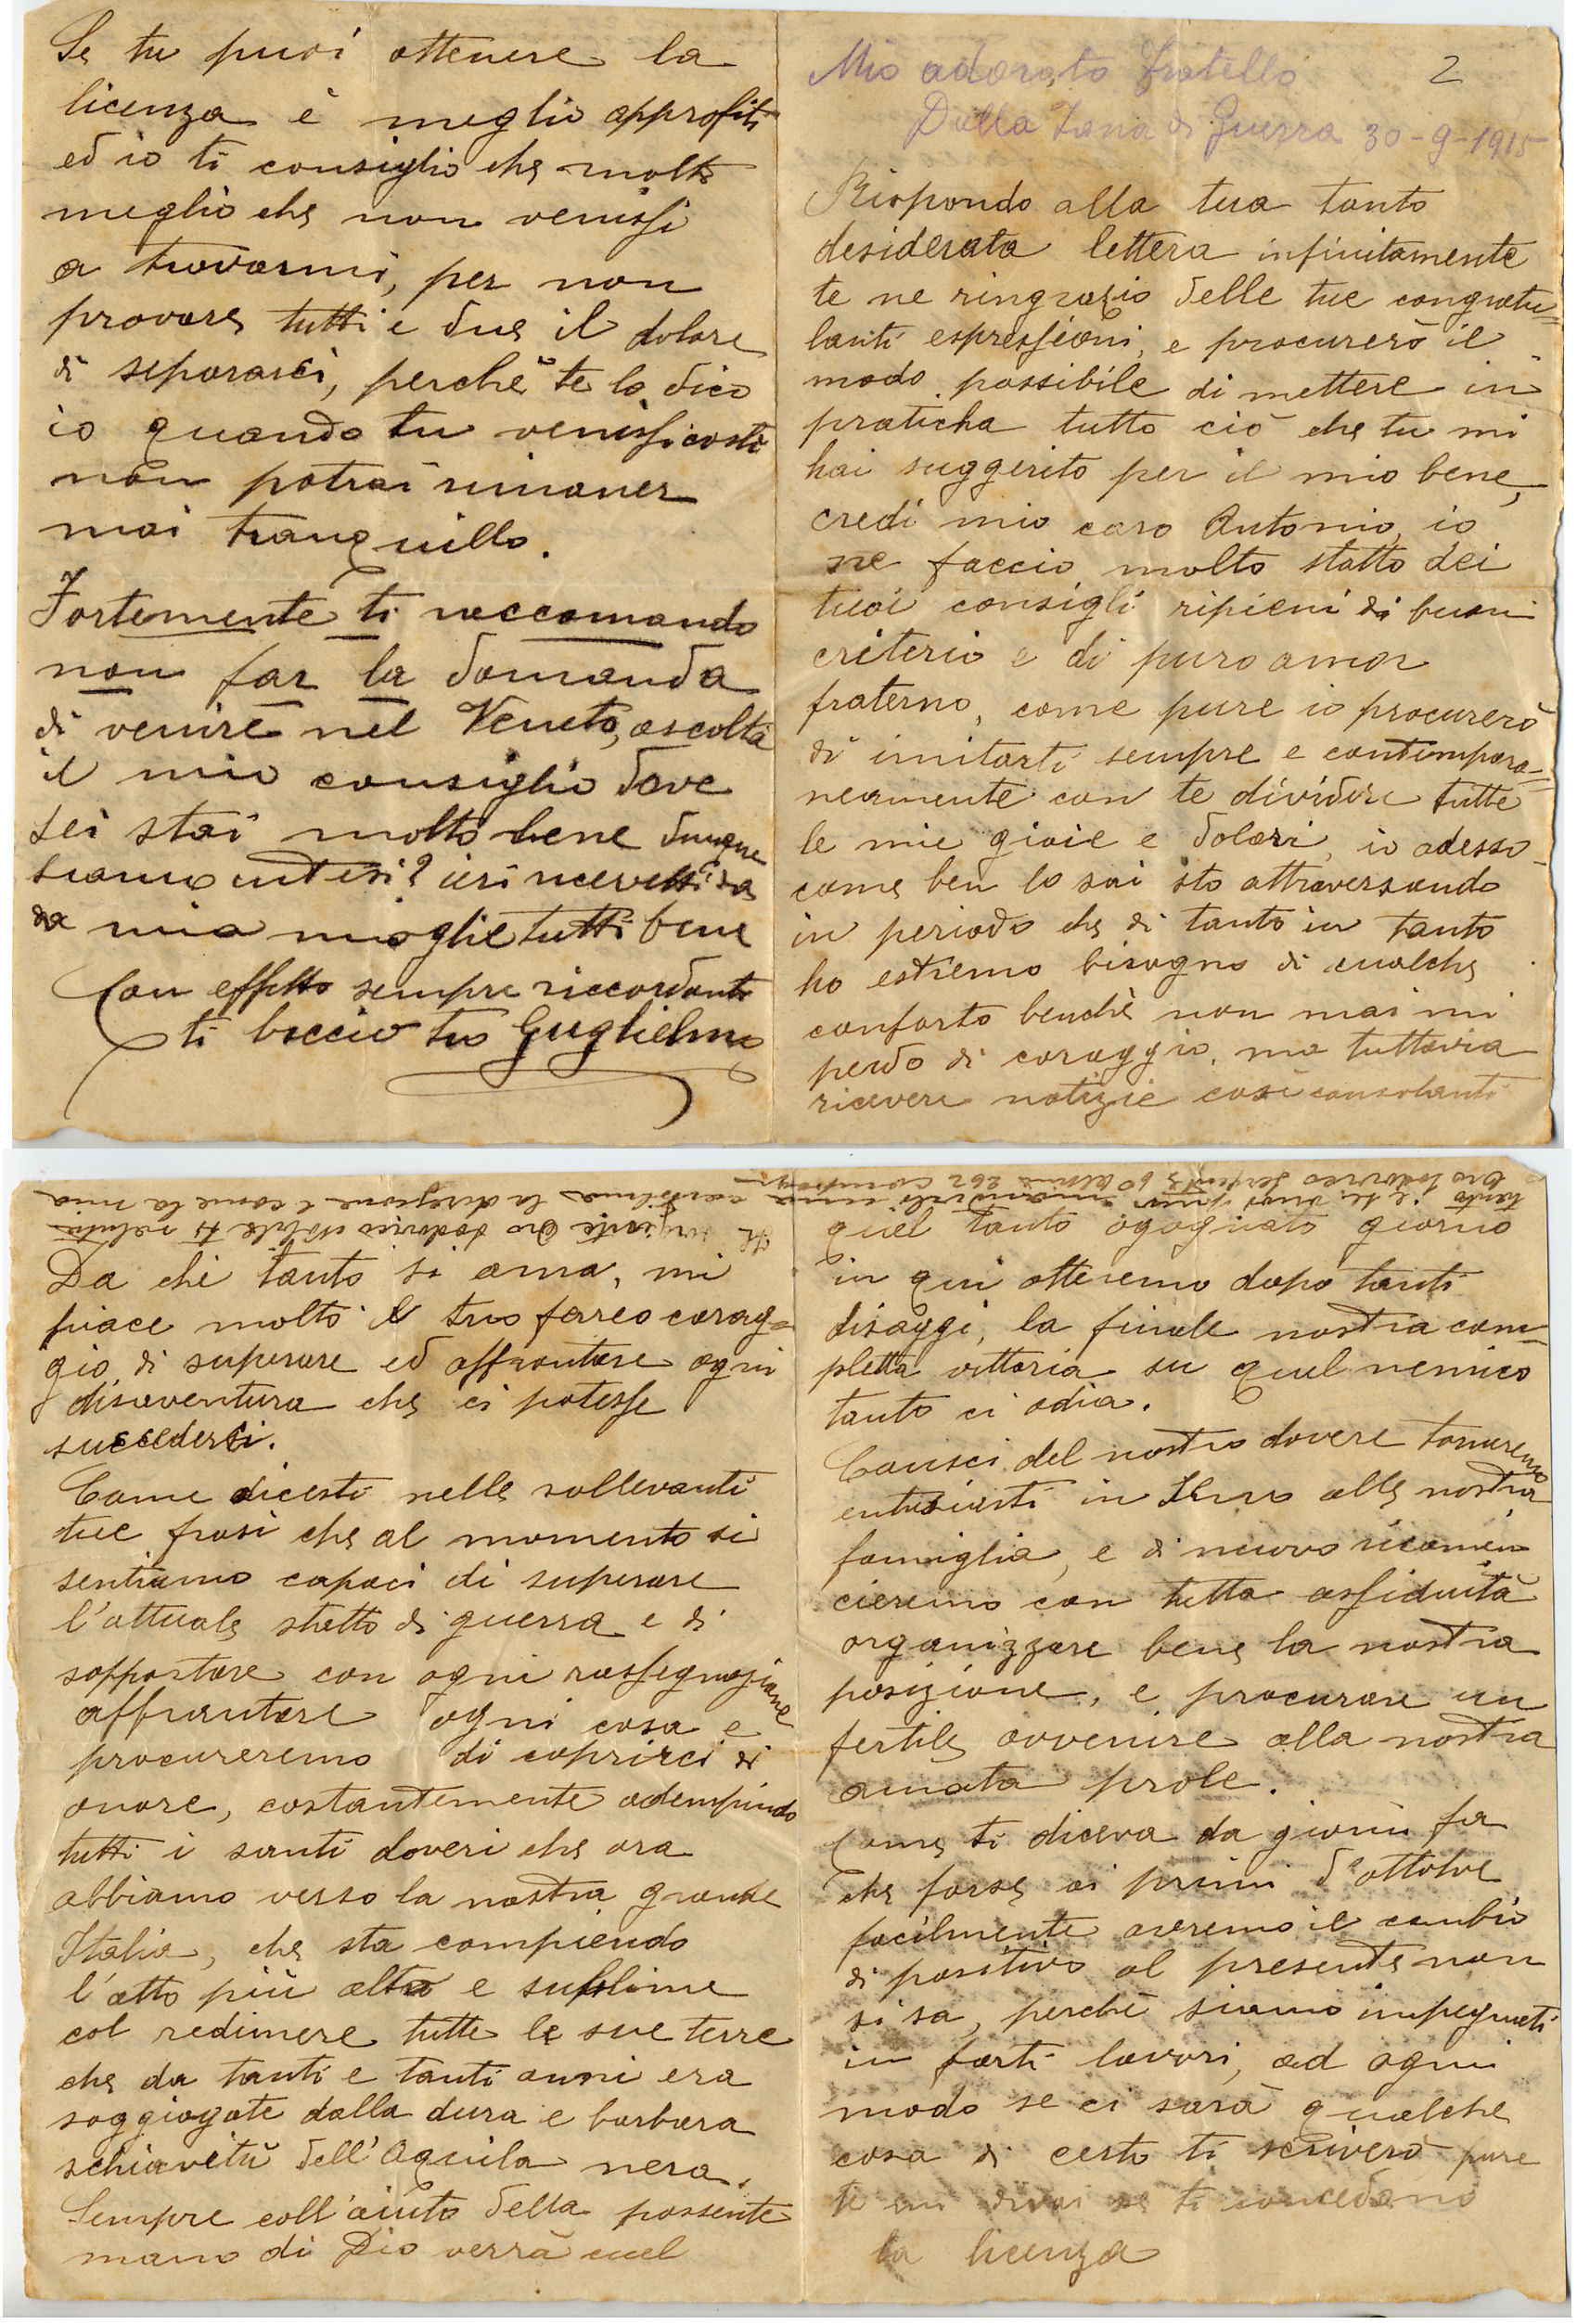 Mio adorato fratello 2
Dalla Zona di Guerra 30-9-1915
Rispondo alla tua tanto
desiderata lettera infinitamente
te ne ringrazio delle tue congratu=
lanti espressioni, e procurerò il
modo possibile di mettere in
praticha tutto ciò che tu mi
hai suggerito per il mio bene,
credi mio caro Antonio, io
ne faccio molto statto dei
tuoi consigli ripieni di buon
criterio e di puro amor
fraterno, come pure io procurerò
di imitarti sempre e contempora=
neamente con te dividere tutte
le mie gioie e dolori, io adesso
come ben lo sai sto attraversando
in periodo che di tanto in tanto
ho estremo bisogno di qualche
conforto benchè non mai mi
perdo di coraggio, ma tuttavia
ricevere notizie così consolanti
Da chi tanto si ama, mi
piace molto il tuo ferreo corag=
gio, di superare ed affrontare ogni
disaventura che ci potesse
succederci.
Come dicesti nelle sollevanti
tue frasi che al momento si
sentiamo capaci di superare
l'attuale statto di guerra e di
soppostare con ogni rassegnazione
affrontare ogni cosa e
procureremo di coprirci di
onore, costantemente adempiendo
tutti i santi doveri che ora
abbiamo verso la nostra grande
Italia, che sta compiendo
l'atto più alto e sublime
col redimere tutte le sue terre
che da tanti e tanti anni era
soggiogate dalla dura e barbara
schiavitù dell'Aquila nera.
Sempre coll'aiuto della possente
mano di Dio verrà quel
quel tanto agognato giorno
in qui otteremo dopo tanti
disaggi, la finale nostra com=
pletta vittoria su quel nemico
tanto ci odia.
Consci del nostro dovere torneremo
entusiasti in seno alle nostra
famiglia, e di nuovo ricomin
cieremo con tutta assiduità
organizzare bene la nostra
posizione, e procurare un
fertile avvenire alla nostra
amata prole.
Come ti diceva da giorni fa
che forse ai primi d'ottobre
facilmente avremo il cambio
di positivo al presente non
si sa, perchè siamo impegnati
in forti lavori, ad ogni
modo se ci sarà qualche
cosa di certo ti scriverò pure
te mi dirai se ti concedano
la licenza
Il sergente Oro Lodovico Nobile ti saluta
tanto e se puoi pur mandirli una cartolina la diregione è come la mia
Oro Lodovico sergente 6° Alpini 262 compag.
Se tu puoi ottenere la
licenza è meglio approfiti
ed io ti consiglio che molto
meglio che non venissi
a trovarmi, per non
provare tutti e due il dolore
di separarci, perchè te lo dico
io quando tu venissi costì
non potrai rimaner
mai tranquillo.
Fortemente ti raccomando
non far la domanda
di venire nel Veneto, ascolta
il mio consiglio dove
sei stai molto bene dunque
siamo intesi? ieri ricevetti da
da mia moglie tutti bene
Con affetto sempre riccordanti
ti baccio tuo Guglielmo